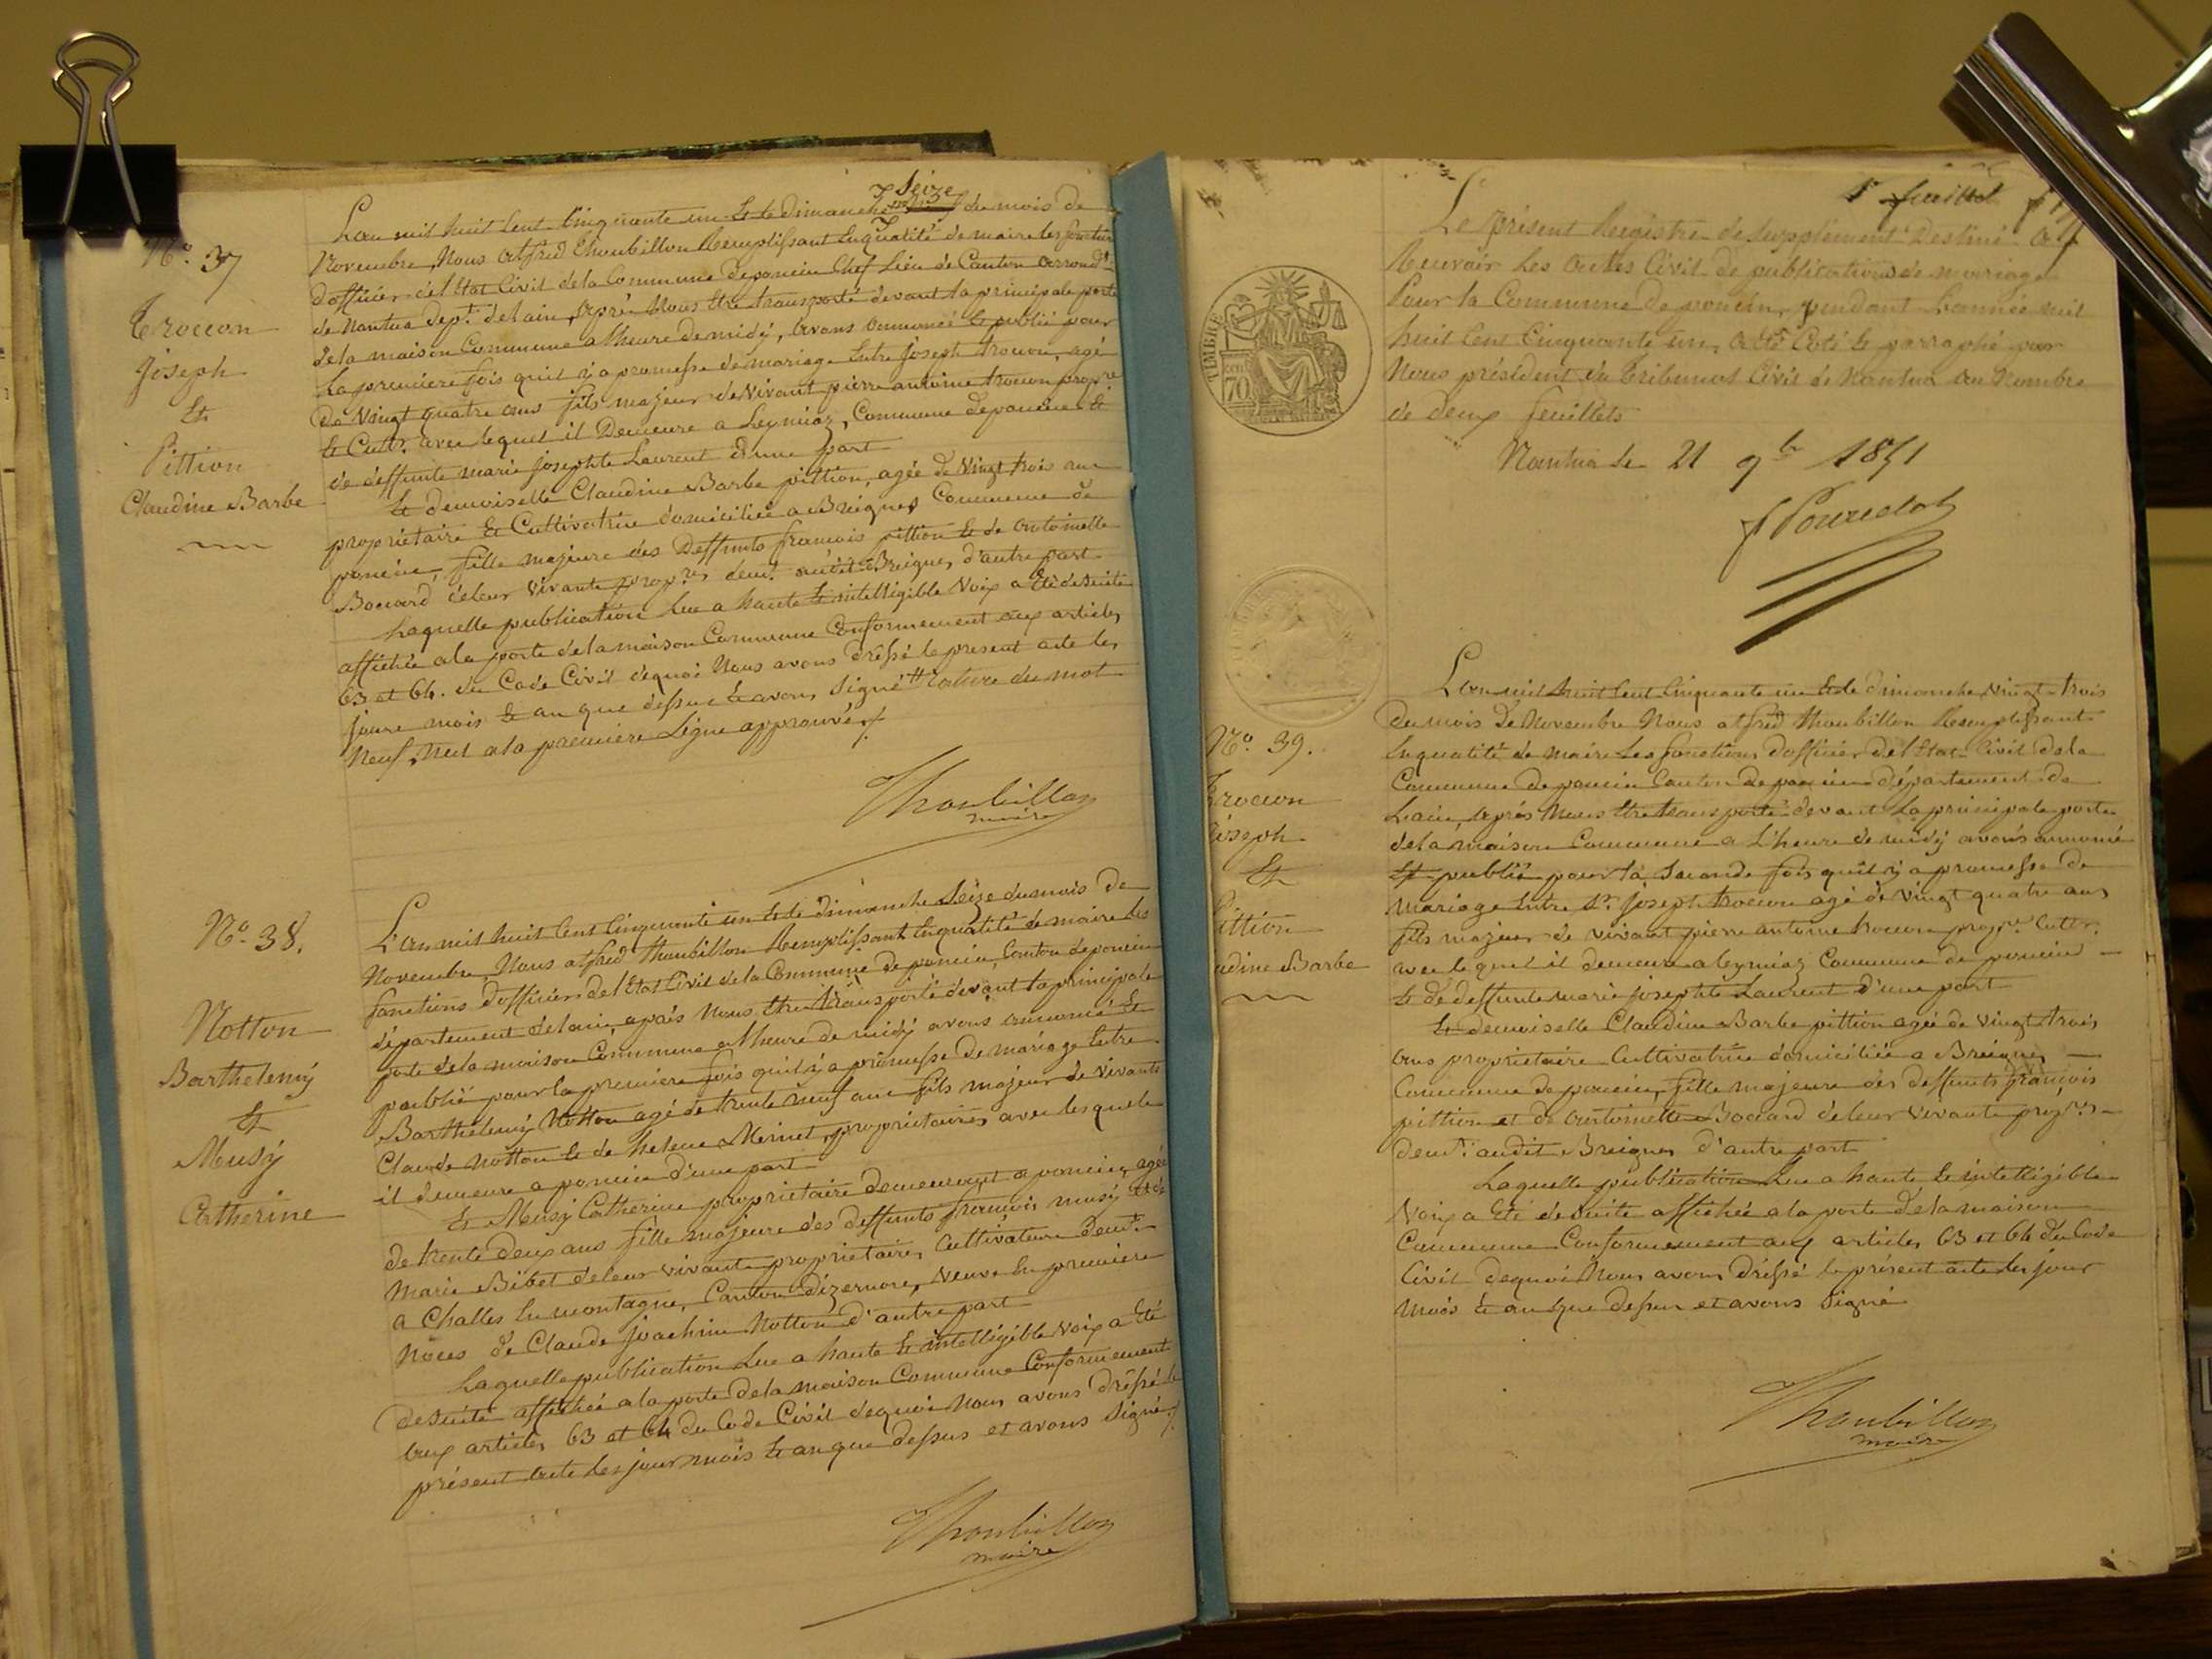 N.o 37
Trocon
Joseph
Et
Pittion
Claudine Barbe
Seize
L'an mil huit Cent Cinquante un Et le dimanche du mois de
Novembre, Nous alfred Thoubillon Remplissant En qualité de maire les
d'officier del Etat Civil dela Commune de poncin Chef Lieu de Canton arrond.t
de Nantua dep.t delain, après Nous Etre transporté devant la principale porte
dela maison Commune a lheure de midy, avons annoncé Et publié pour
La premiere fois quil y a promesse de mariage Entre joseph trocon, agé
De Vingt quatre ans fils majeur de Vivant pierre antoine trocon propre
Et Cultr. avec lequel il Demeure a Leymiaz, Commune deponcin Et
de deffunte marie josephte Laurent d'une part
Et demoiselle Claudine Barbe pittion, agée de Vingt trois ans
propriétaire Et Cultivatrice domiciliée a Breignes Commune de
poncin, fille majeure des Deffunts francois pittion Et de antoinette
Bocard deleur Vivants prop.res dem.t audit Breignes, d'autre part
Laquelle publication Lue a haute Et intelligible Voix a Eté desuite
affichée a la porte dela maison Commune Conformement aux articles
63 et 64. du Code Civil dequoi Nous avons dréssé le present acte les
jours mois Et an que dessus Et avons Signé # Rature du mot
Neuf, Nul a la premiere Ligne approuvée
Thoubillon
maire
N.o 38.
Notton
Barthelemy
Et
Musy
Catherine
L'an mil huit Cent Cinquante un Et le dimanche Seize du mois de
Novembre, Nous alfred thoubillon Remplissant Enqualité de maire Les
fonctions d'officier del Etat Civil de la Commune de poncin, Canton deponcin
département delain, après Nous Etre transporté devant la principale
porte dela maison Commune a lheure de midy avons annoncé Et
publié pour la premiere fois quil y a promesse de mariage Entre
Barthelemy Notton agé de trente neuf ans fils majeur de vivants
Claude Notton Et de helene Mermet, propriétaires avec lesquels
il demeure a poncin d'une part
Et Musy Catherine propriétaire demeurant a poncin, agée
de trente deux ans fille majeure des deffunts francois musy Et de
Marie Bibet deleur vivants propriétaires Cultivateurs dem.t
a Challes La montagne, Canton dizernore, Veuve En premiere
Noces de Claude joachim Notton d'autre part
Laquelle publication Lue a haute Et intelligible Voix a Eté
desuite affichée a la porte dela maison Commune Conformement
aux articles 63 et 64 du Code Civil dequoi Nous avons dréssé le
présent acte les jour mois Et an que dessus et avons Signé
Thoubillon
maire
1r feuillet
Le présent Registre de supplement Destiné a
Recevoir Les actes Civil de publications de mariage
Pour la Commune de poncin, pendant L'année mil
huit Cent Cinquante un, a été Coté Et parraphé par
Nous président du Tribunal Civil de Nantua au Nombre
de deux feuillets
Nantua le 21 9bre 1851
TIMBRE
70
N.o 39.
Trocon
Joseph
Et
Pittion
udine Barbe
L'an mil huit Cent Cinquante un Et le dimanche Vingt-trois
Du mois de Novembre Nous alfred thoubillon Remplissant
Enqualité de maire Les fonctions d'officier del Etat Civil dela
Commune de poncin Canton de poncin département de
Lain, après Nous Etre transporté devant La principale porte
dela maison Commune a L'heure de midy avons annoncé
Et publié pour la Seconde fois quil y a promesse de
Mariage Entre Sr. Joseph trocon agé de Vingt quatre ans
fils majeur de vivant pierre antoine trocon propre Cultr.
avec lequel il demeure a Leymiaz Commune de poncin
Et de deffunte marie josephte Laurent d'une part
Et demoiselle Claudine Barbe pittion agée de Vingt trois
ans propriétaire Cultivatrice domiciliée a Breignes
Commune de poncin, fille majeure des deffunts françois
pittion et de antoinette Bocard deleur vivants prop.res
dem.t audit Breignes d'autre part
Laquelle publication Lue a haute Et intelligible
Voix a Eté desuite affichée a la porte dela maison
Commune Conformement aux articles 63 et 64 du Code
Civil dequoi Nous avons dréssé le présent acte les jour
Mois Et an que dessus et avons Signé
Thoubillon
maire